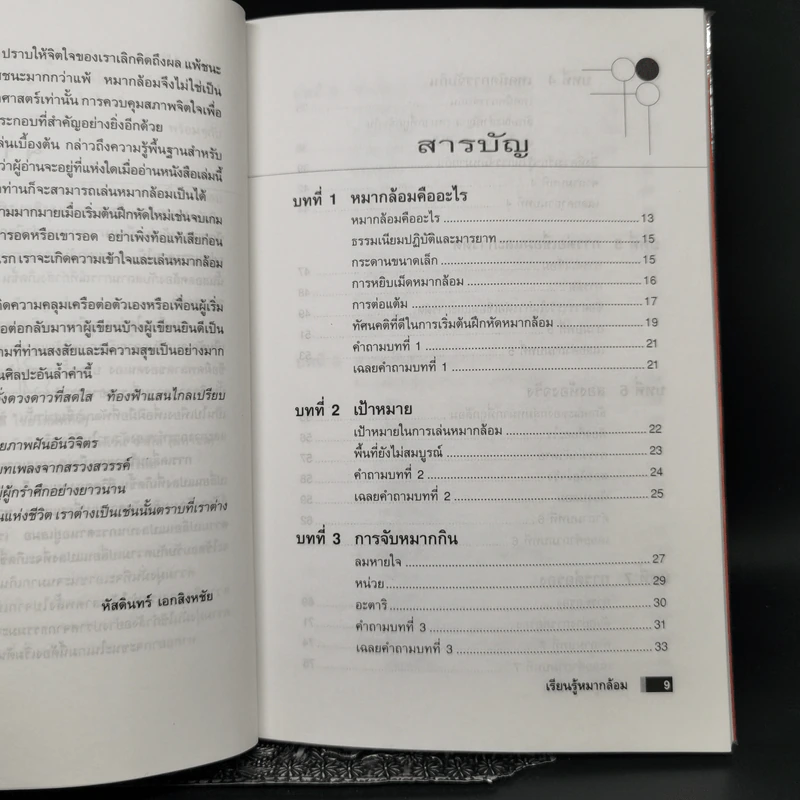 ปราบให้จิตใจของเราเลิกคิดถึงผล แพ้ชนะ
ชนะมากกว่าแพ้ หมากล้อมจึงไม่ใช่เป็น
ศาสตร์เท่านั้น การควบคุมสภาพจิตใจเพื่อ
ประกอบที่สำคัญอย่างยิ่งอีกด้วย
เล่นเบื้องต้น กล่าวถึงความรู้พื้นฐานสำหรับ
ว่าผู้อ่านจะอยู่ที่แห่งใดเมื่ออ่านหนังสือเล่มนี้
ท่านก็จะสามารถเล่นหมากล้อมเป็นได้
ามมากมายเมื่อเริ่มต้นฝึกหัดใหม่เช่นจบเกม
ารอดหรือเขารอด อย่าเพิ่งท้อแท้เสียก่อน
แรก เราจะเกิดความเข้าใจและเล่นหมากล้อม
กิดความคลุมเครือต่อตัวเองหรือเพื่อนผู้เริ่ม
ต่อกลับมาหาผู้เขียนบ้างผู้เขียนยินดีเป็น
ามที่ท่านสงสัยและมีความสุขเป็นอย่างมาก
นศิลปะอันล้ำค่านี้
ั่งดวงดาวที่สดใส ท้องฟ้าแสนไกลเปรียบ
ยภาพฝันอันวิจิตร
บทเพลงจากสรวงสวรรค์
ผู้กรำศึกอย่างยาวนาน
นแห่งชีวิต เราต่างเป็นเช่นนั้นตราบที่เราต่าง
หัสดินทร์ เอกสิงหชัย
สารบัญ
บทที่ 1 หมากล้อมคืออะไร
หมากล้อมคืออะไร 13
ธรรมเนียมปฏิบัติและมารยาท 15
กระดานขนาดเล็ก 15
การหยิบเม็ดหมากล้อม 16
การต่อแต้ม 17
ทัศนคติที่ดีในการเริ่มต้นฝึกหัดหมากล้อม 19
คำถามบทที่ 1 21
เฉลยคำถามบทที่ 1 21
บทที่ 2 เป้าหมาย
เป้าหมายในการเล่นหมากล้อม 22
พื้นที่ยังไม่สมบูรณ์ 23
คำถามบทที่ 2 24
เฉลยคำถามบทที่ 2 25
บทที่ 3 การจับหมากกิน
ลมหายใจ 27
หน่วย 29
อะตาริ 30
คำถามบทที่ 3 31
เฉลยคำถามบทที่ 3 33
เรียนรู้หมากล้อม 9